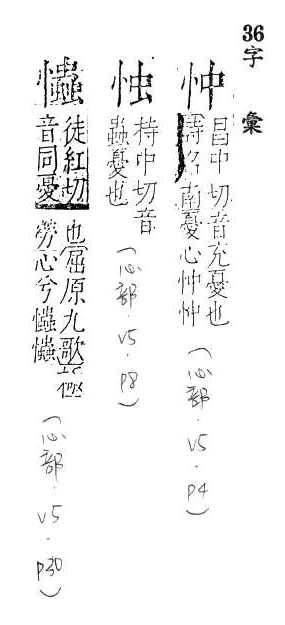 36字 彙
忡
昌中切音充憂也
詩召南憂心忡忡
(心部.v5.p4)
持中切音
蟲憂也
(心部.v5.p8)
徒紅切
音同憂
也屈原九歌
勞心兮
(心部.v5.p30)